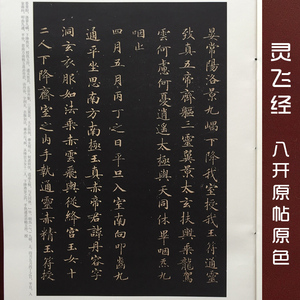 灵飞经
八开原帖原色
景常陽洛景九嵎下降我室授我玉符通靈
致真五帝齊軀三靈翼景太玄扶轝乘龍駕
雲何慮何憂逍遙太極與天同休畢咽三九
咽止
四月五月丙丁之日平旦入室南向叩齒九
通平坐思南方南極玉真赤帝君諱丹容字
洞玄衣服如法乘赤雲飛輿從絳宮玉女十
二人下降齋室之内手執通靈赤精玉符授